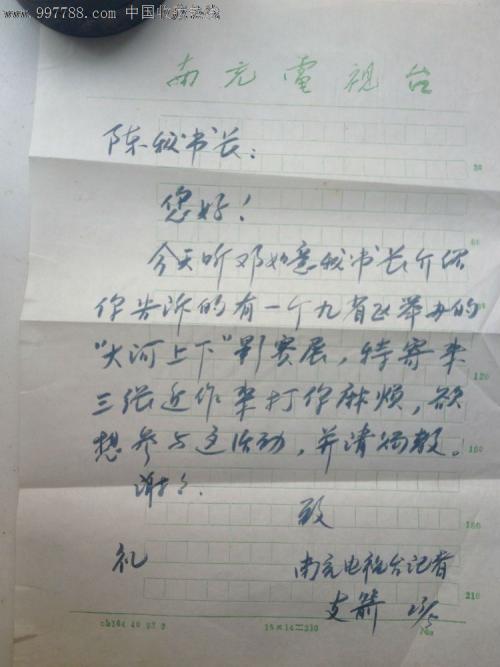 www.997788.com 中国收藏热线
南充電视台
陈秘书长：
您好！
今天听邓如意秘书长介绍
你告诉的有一个九省区举办的
“大河上下”影赛展，特寄来
三张近作来打你麻烦，欲
想参与这活动，并请赐教。
谢谢.
致
礼
南充电视台记者
支箭
15×14=210